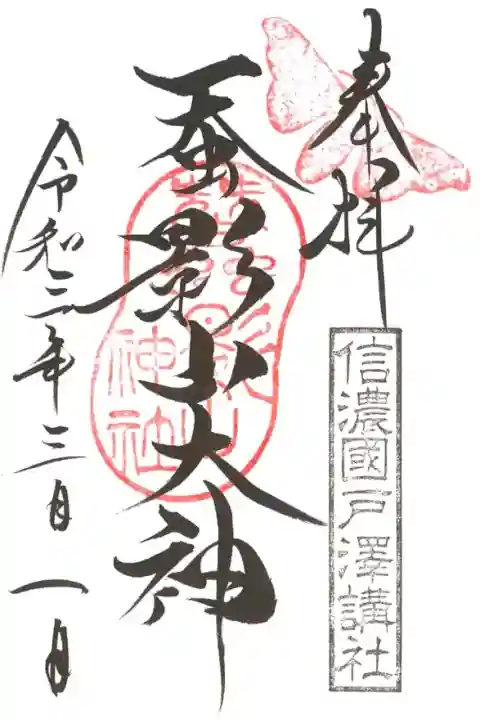 奉拝
信濃國戸澤講社
蚕影山大神
蠶影山神社
令和三年三月一日